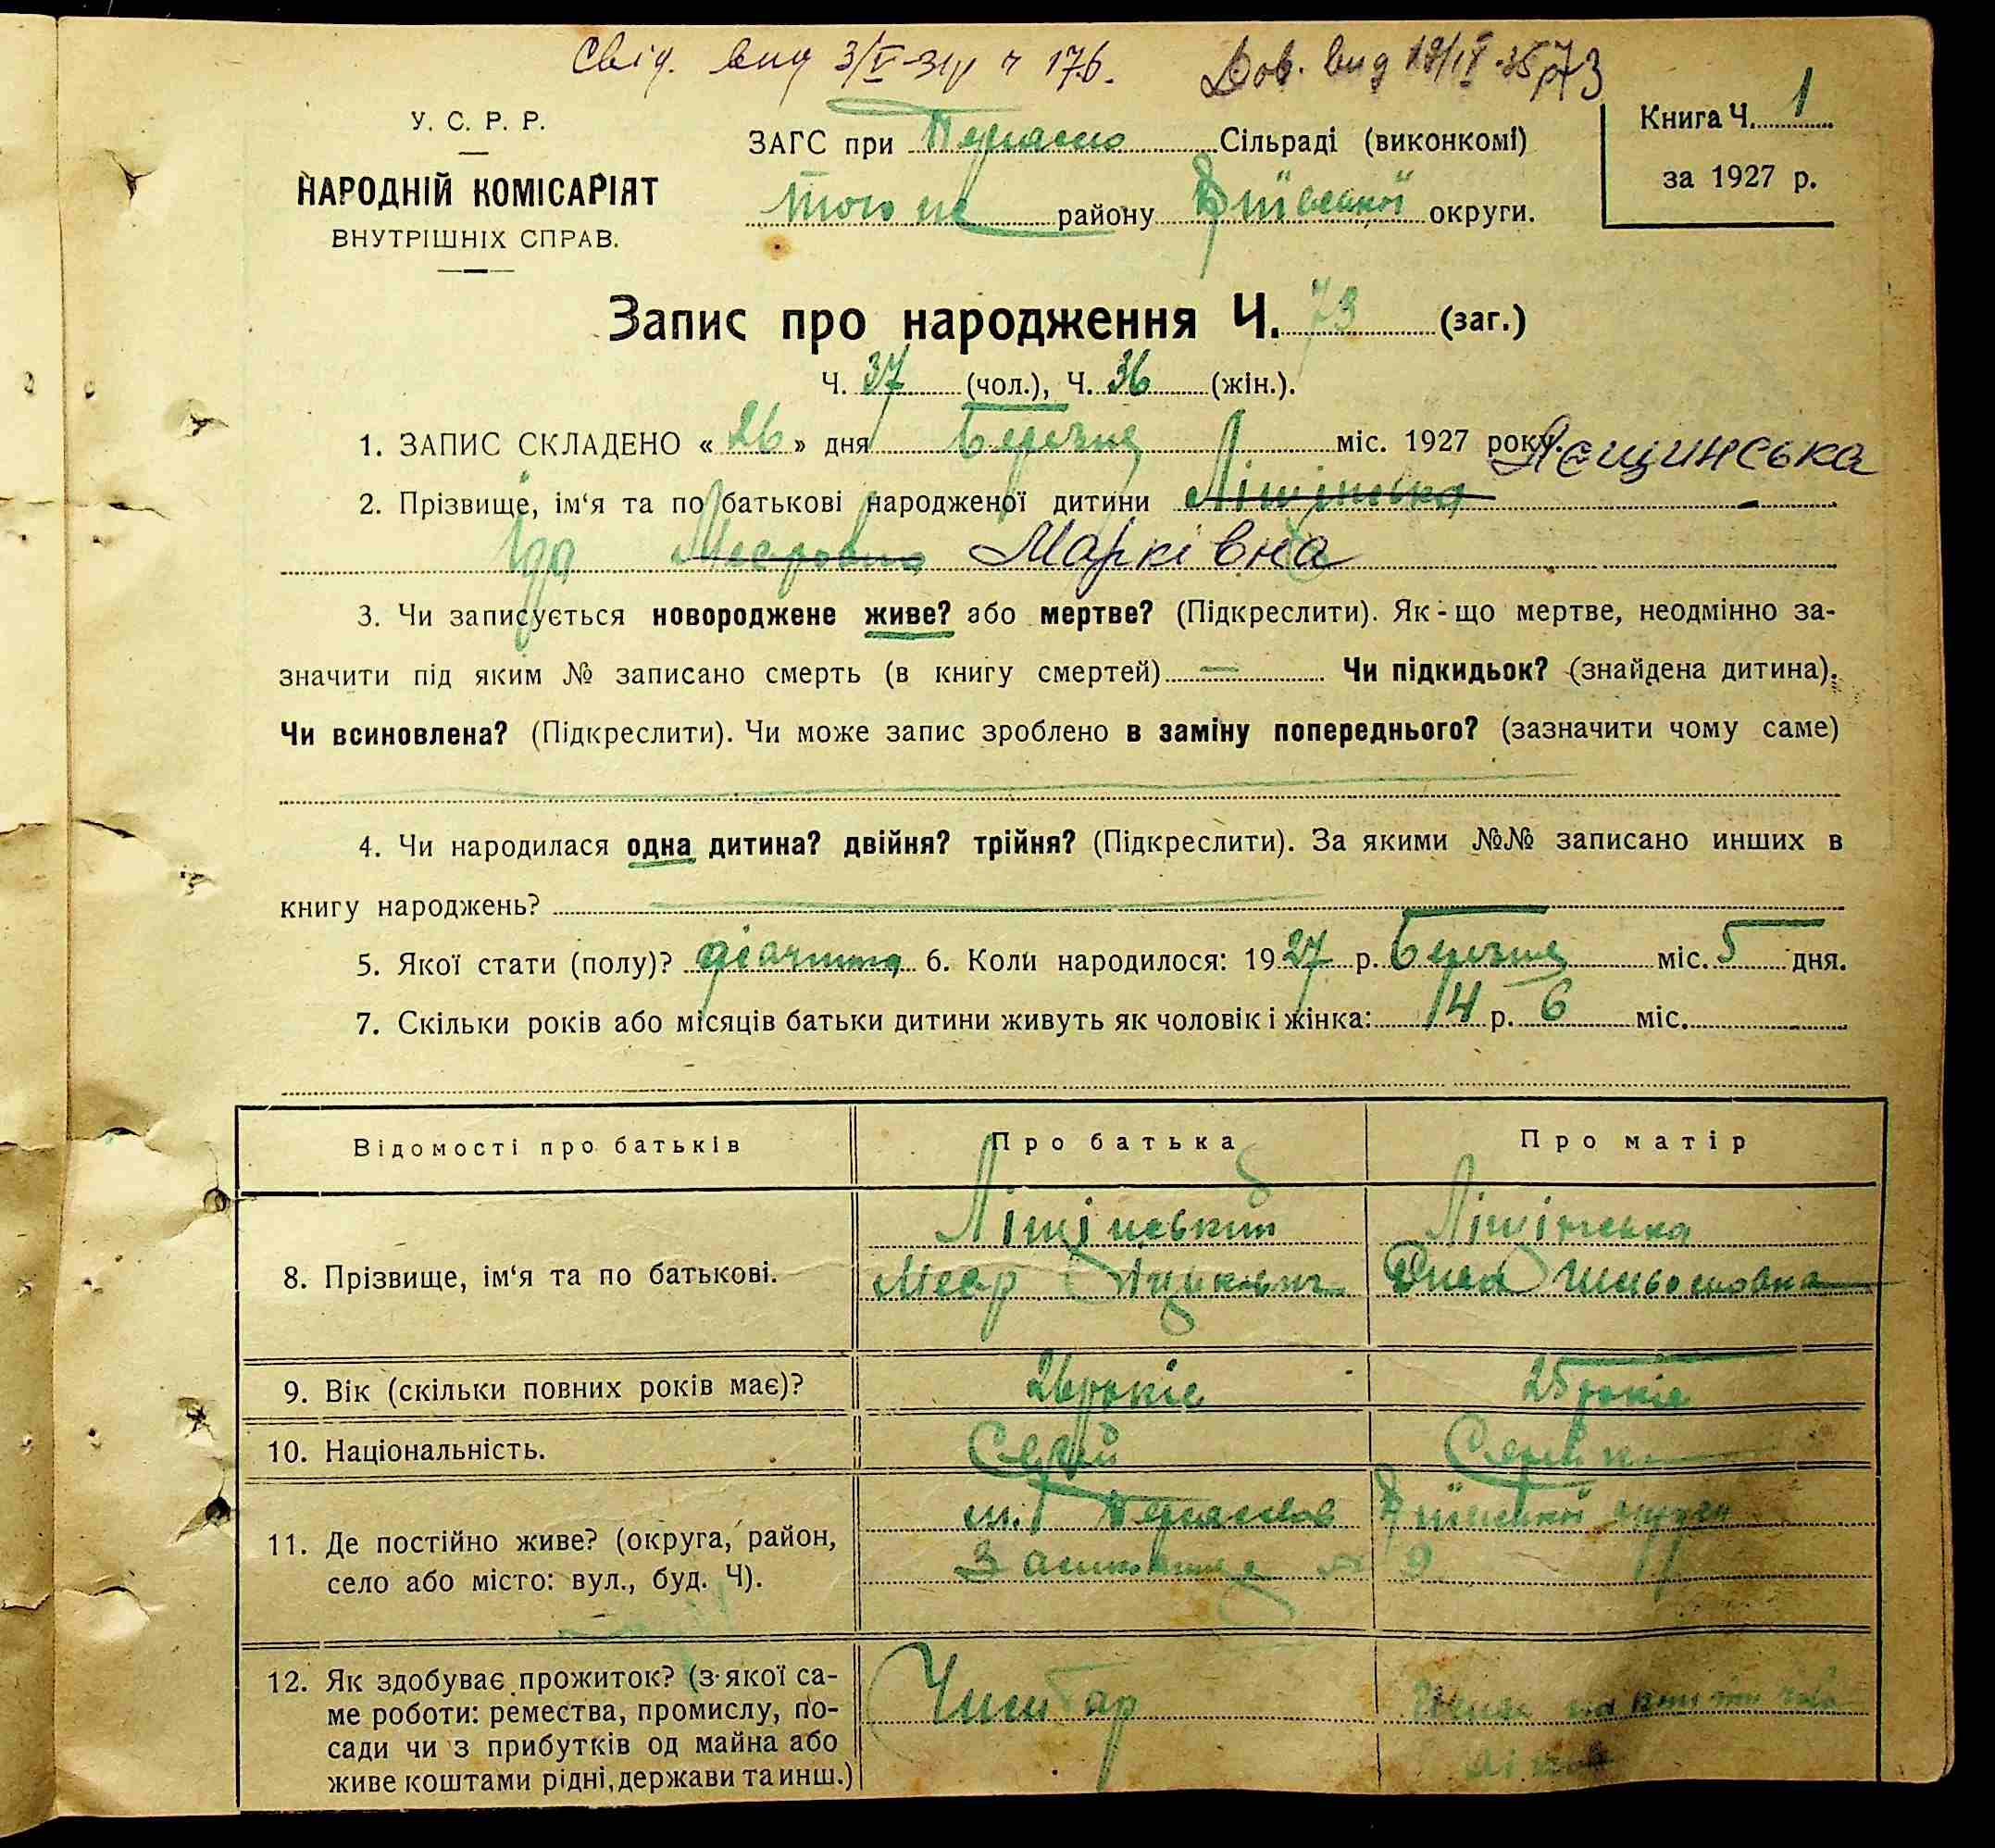 Свід. вид 3/V-31р ч 176. Дов. вид 19/IV-35р 73
У. С. Р. Р.
НАРОДНІЙ КОМІСАРІЯТ
ВНУТРІШНІХ СПРАВ.
ЗАГС при Сільраді (виконкомі)
того ж району Київської округи.
Книга Ч. 1
за 1927 р.
Запис про народження Ч. 73 (заг.)
Ч. 37 (чол.), Ч. 36 (жін.).
1. ЗАПИС СКЛАДЕНО « 26 » дня Березня міс. 1927 року.
Лєщинська
2. Прізвище, ім‘я та по батькові народженої дитини Лішінська
Іда Меєровна Марківна
3. Чи записується новороджене живе? або мертве? (Підкреслити). Як-що мертве, неодмінно за-
значити під яким № записано смерть (в книгу смертей) — Чи підкидьок? (знайдена дитина).
Чи всиновлена? (Підкреслити). Чи може запис зроблено в заміну попереднього? (зазначити чому саме)
4. Чи народилася одна дитина? двійня? трійня? (Підкреслити). За якими №№ записано инших в
книгу народжень?
5. Якої стати (полу)? дівчина 6. Коли народилося: 1927 р. Березня міс. 5 дня.
7. Скільки років або місяців батьки дитини живуть як чоловік і жінка: 14 р. 6 міс.
Відомості про батьків Про батька Про матір
8. Прізвище, ім‘я та по батькові.
Лішінський
Меєр Іцькович
Лішінська
9. Вік (скільки повних років має)? 26 років 25 років
10. Національність. Єврей Єврейка
11. Де постійно живе? (округа, район,
село або місто: вул., буд. Ч).
м. Київської округи
9
12. Як здобуває прожиток? (з якої са-
ме роботи: ремества, промислу, по-
сади чи з прибутків од майна або
живе коштами рідні, держави та инш.)
Чинбар